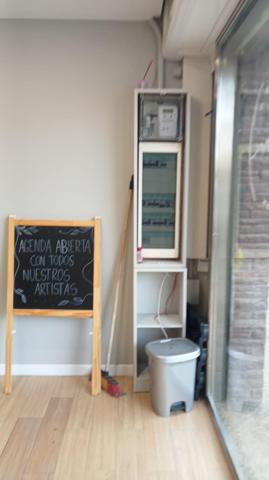 AGENDA ABIERTA
CON TODOS
NUESTROS
ARTISTAS